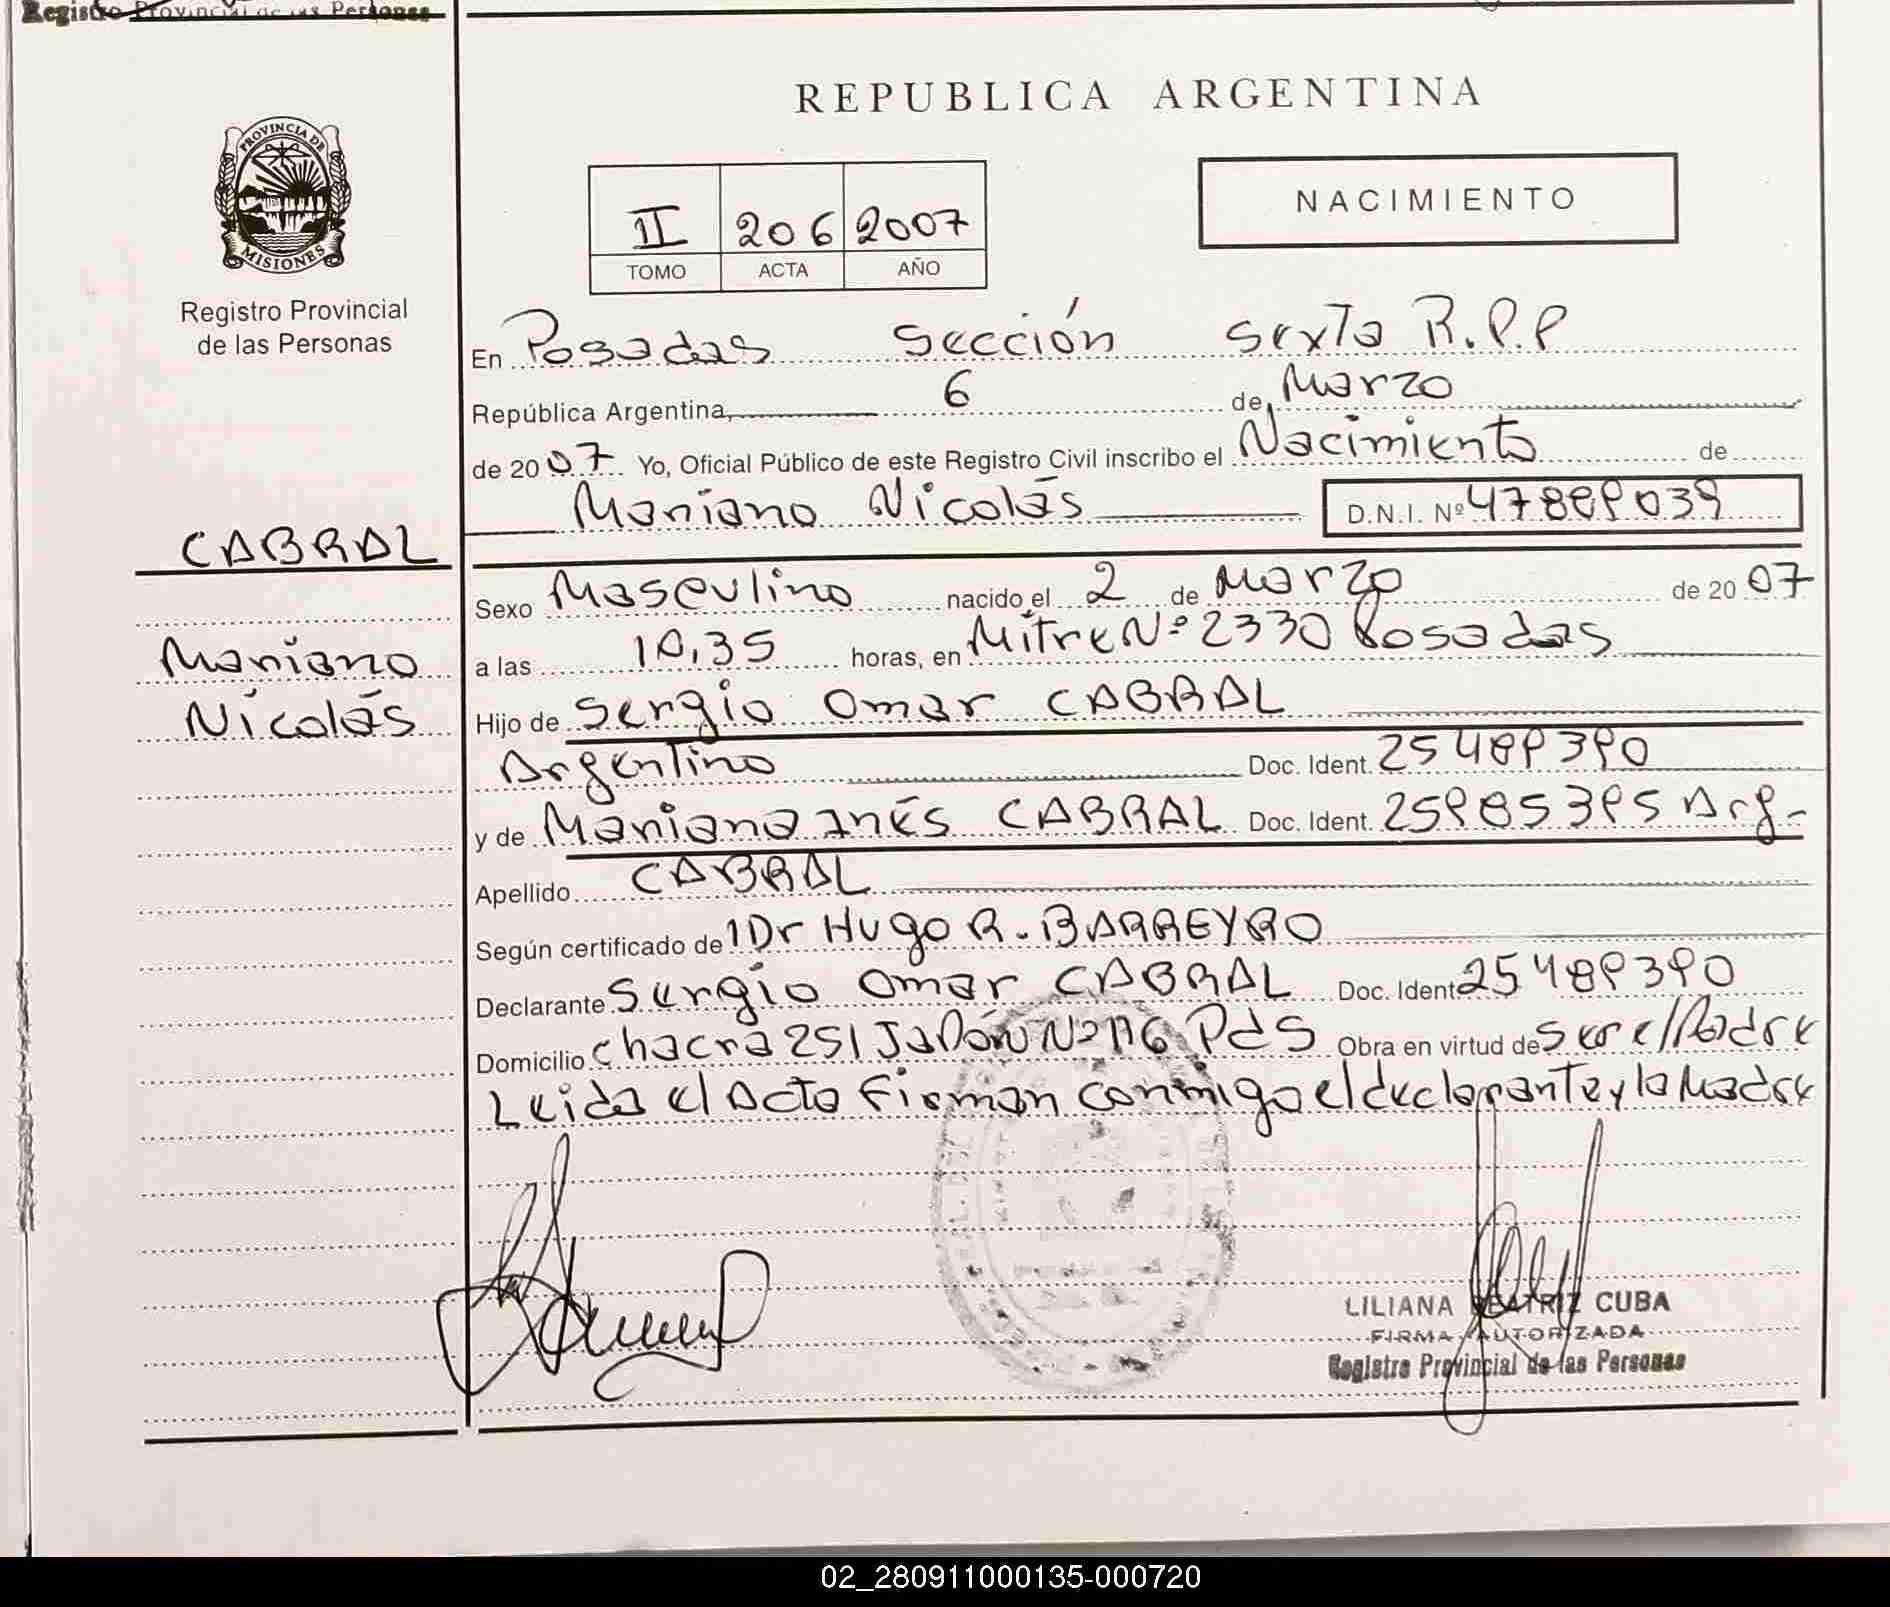 Registro Provincial de las Personas
REPUBLICA ARGENTINA
PROVINCIA DE
MISIONES
Registro Provincial
de las Personas
II 206 2007
TOMO ACTA AÑO
NACIMIENTO
En Posadas Sección Sexta R.P.P
República Argentina, 6 de Marzo
de 2007 Yo, Oficial Público de este Registro Civil inscribo el Nacimiento de
Mariano Nicolás D.N.I. Nº 47889039
CABRAL
Mariano
Nicolás
Sexo Masculino nacido el 2 de Marzo de 2007
a las 10,35 horas, en Mitre Nº 2330 Posadas
Hijo de Sergio Omar CABRAL
Argentino Doc. Ident. 25489390
y de Mariana Inés CABRAL Doc. Ident. 25985395 Arg-
Apellido CABRAL
Según certificado de 1 Dr Hugo R. BARREYRO
Declarante Sergio Omar CABRAL Doc. Ident 25489390
Domicilio Chacra 251 Japón Nº 116 Pds Obra en virtud de Ser el Padre
Leida el Acta Firman conmigo el declarante y la Madre
LILIANA BEATRIZ CUBA
FIRMA AUTORIZADA
Registro Provincial de las Personas
02_280911000135-000720